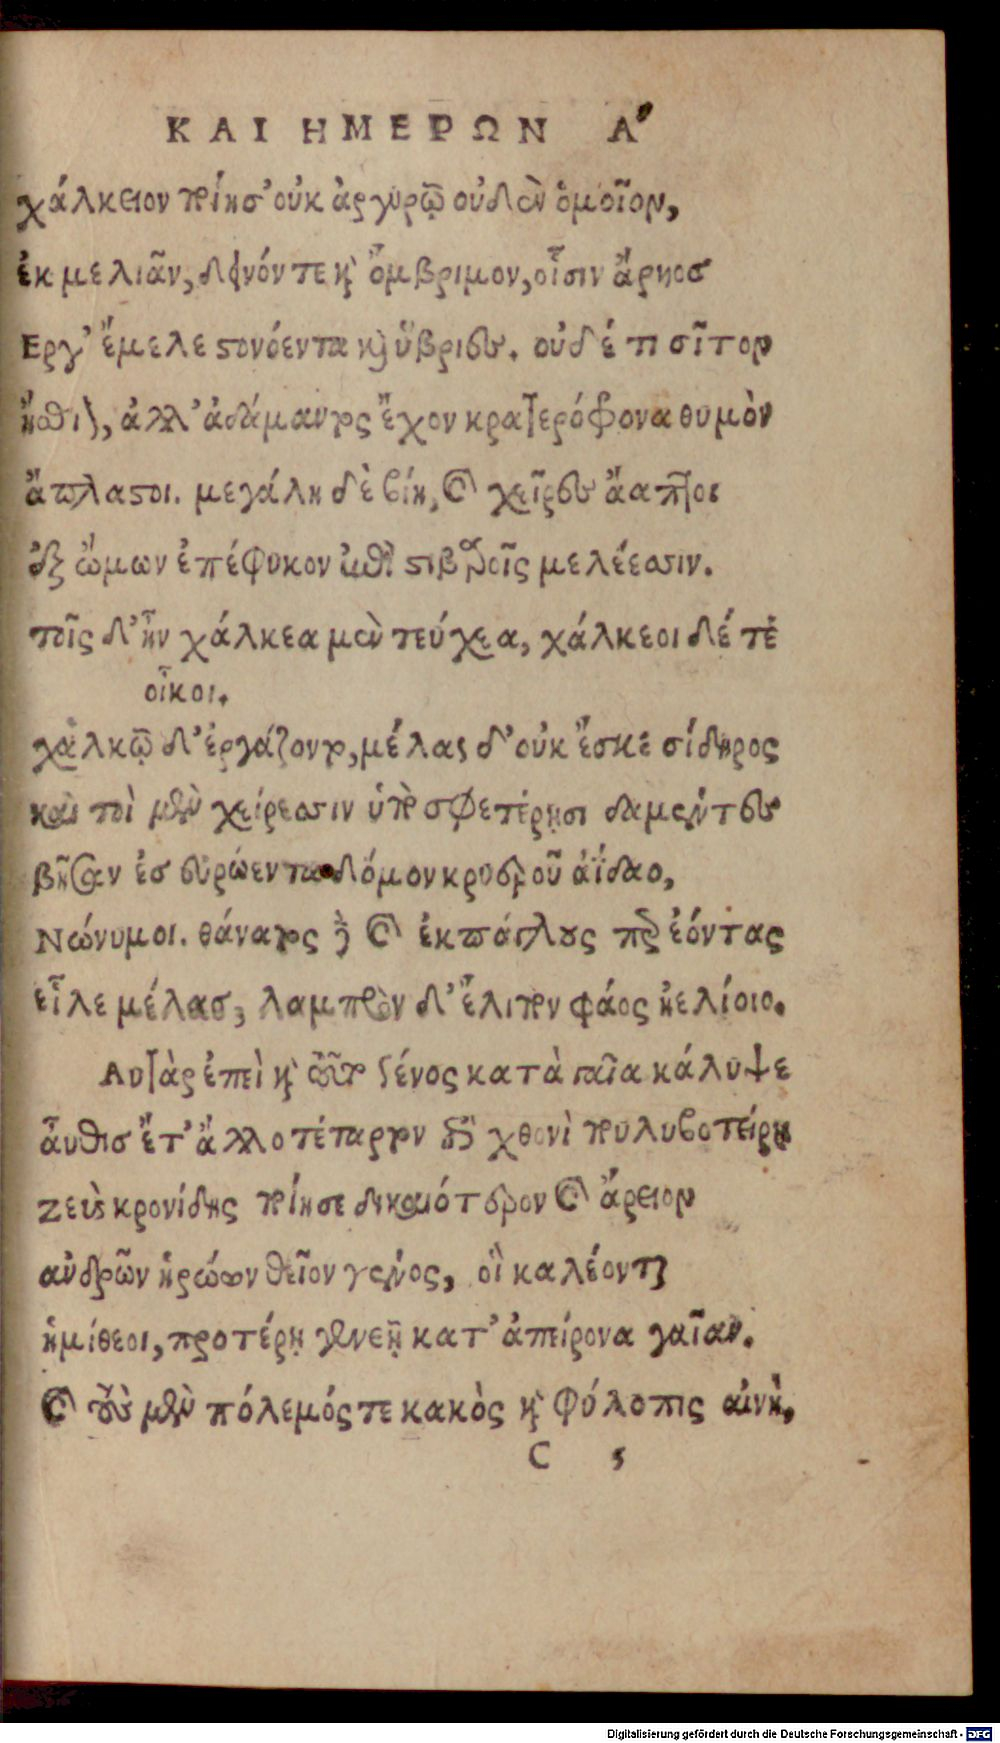 ΚΑΙ ΗΜΕΡΩΝ Α
χάλκειον ποίησ' οὐκ ἀργυρῷ οὐδὲν ὁμοῖον,
ἐκ μελιᾶν, δεινόν τε καὶ ὄμβριμον, οἷσιν ἄρηοσ
Εργ' ἔμελε στονόεντα καὶ ὕβριες. οὐδέ τι σῖτον
ἤσθιον, ἀλλ' ἀδάμαντος ἔχον κρατερόφρονα θυμὸν
ἄπλαστοι. μεγάλη δὲ βίη, καὶ χεῖρες ἄαπτοι
ἐξ ὤμων ἐπέφυκον ἐπὶ στιβαροῖς μελέεσσιν.
τοῖς δ' ἦν χάλκεα μὲν τεύχεα, χάλκεοι δέ τε
οἶκοι.
χαλκῷ δ' ἐργάζοντο, μέλας δ' οὐκ ἔσκε σίδηρος
καὶ τοὶ μὲν χείρεσσιν ὑπὸ σφετέρῃσι δαμέντες
βῆσαν ἐσ εὐρώεντα δόμον κρυεροῦ ἀΐδαο,
Νώνυμοι. θάνατος δὲ καὶ ἐκπάγλους περ ἐόντας
εἷλε μέλασ, λαμπρὸν δ' ἔλιπον φάος ἠελίοιο.
Αυτὰρ ἐπεὶ καὶ τοῦτο γένος κατὰ γαῖα κάλυψε
αὖθισ ἔτ' ἄλλο τέταρτον ἐπὶ χθονὶ πουλυβοτείρῃ
Ζεὺς κρονίδης ποίησε δικαιότερον καὶ ἄρειον
ἀνδρῶν ἡρώων θεῖον γένος, οἳ καλέονται
ἡμίθεοι, προτέρῃ γενεῇ κατ' ἀπείρονα γαῖαν.
καὶ τοὺς μὲν πόλεμός τε κακὸς καὶ φύλοπις αἰνὴ,
C 5
Digitalisierung gefördert durch die Deutsche Forschungsgemeinschaft - DFG